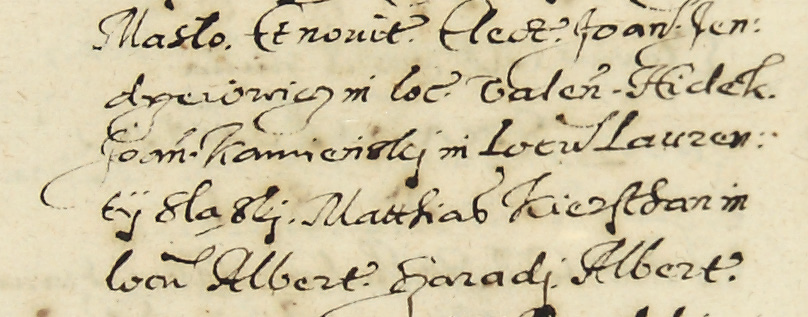 Masło. Et novit. Elect. Joan. Jen:
drzeiowicz in loc. Valen. Hidek.
Joan. Kamieński in Locu Lauren:
tij Sląski. Matthias Kiersthan in
locu Albert. Albert.